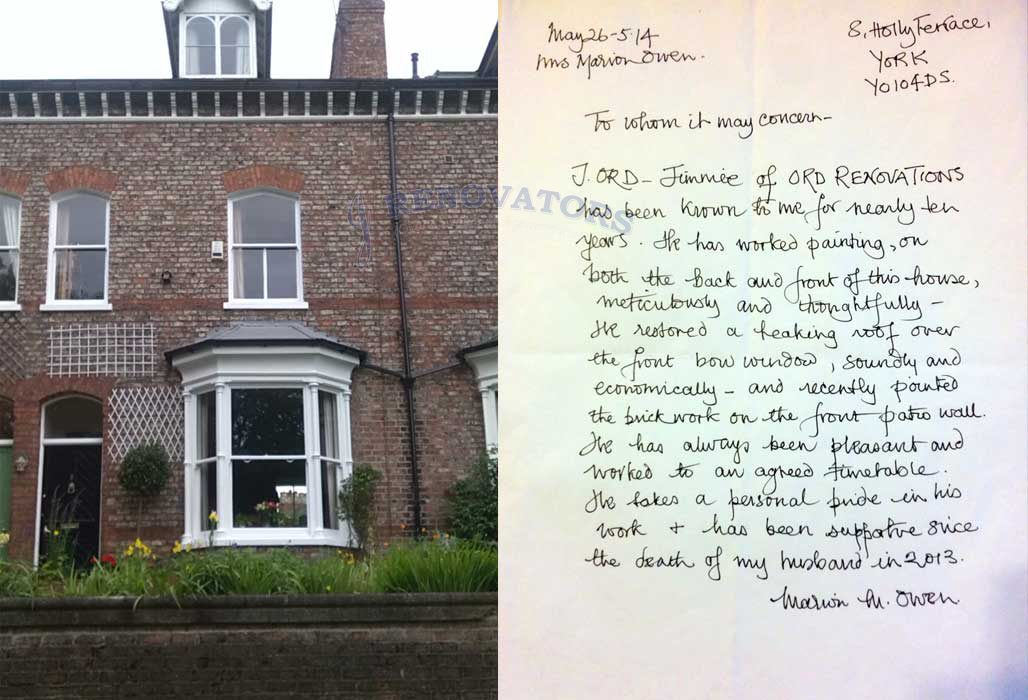 May 26-5.14
Mrs Marion Owen.
8, Holly Terrace,
YORK
YO10 4DS.
To whom it may concern-
J. ORD - Jimmie of ORD RENOVATIONS
has been known to me for nearly ten
years. He has worked painting, on
both the back and front of this house,
meticulously and thoughtfully -
He restored a leaking roof over
the front bow window, soundly and
economically - and recently pointed
the brickwork on the front patio wall.
He has always been pleasant and
worked to an agreed timetable.
He takes a personal pride in his
work + has been supportive since
the death of my husband in 2013.
Marion M. Owen
RENOVATORS